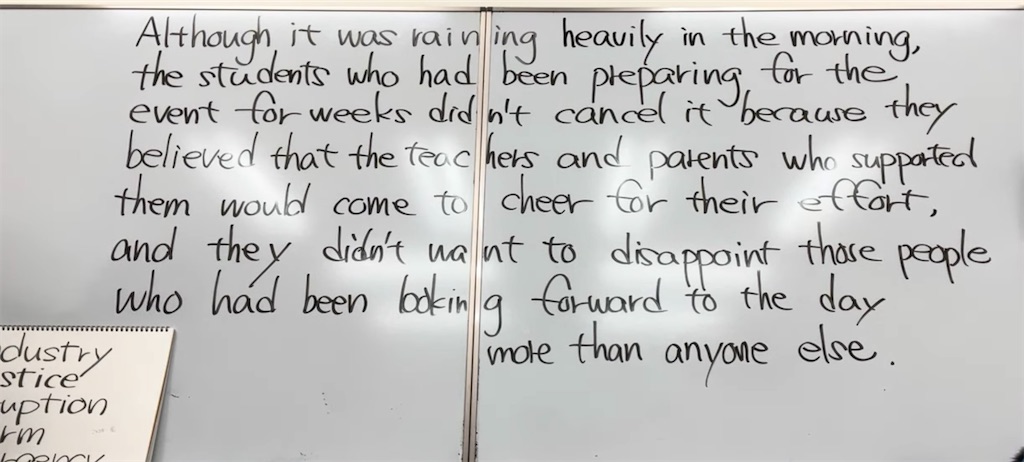 Although it was raining heavily in the morning,
the students who had been preparing for the
event for weeks didn't cancel it because they
believed that the teachers and parents who supported
them would come to cheer for their effort,
and they didn't want to disappoint those people
who had been looking forward to the day
more than anyone else.
dustry
stice
uption
rm